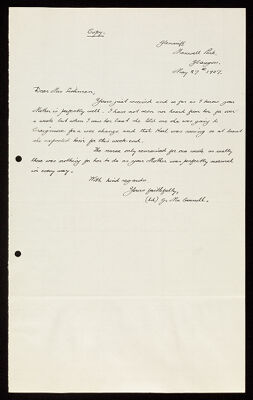 Copy.
Glencliff
Maxwell Park,
Glasgow.
May 27th 1927.
Dear Mrs
Yours just received and so far as I know your
Mother is perfectly well. I have not seen nor heard from her for over
a week but when I saw her last she told me she was going to
for a change and that
she expected home for this week-end.
The nurse only remained for one week as really
there was nothing for her to do as your Mother was perfectly normal
in every way.
With kind regards
Yours faithfully,
(Sd) G. Mc